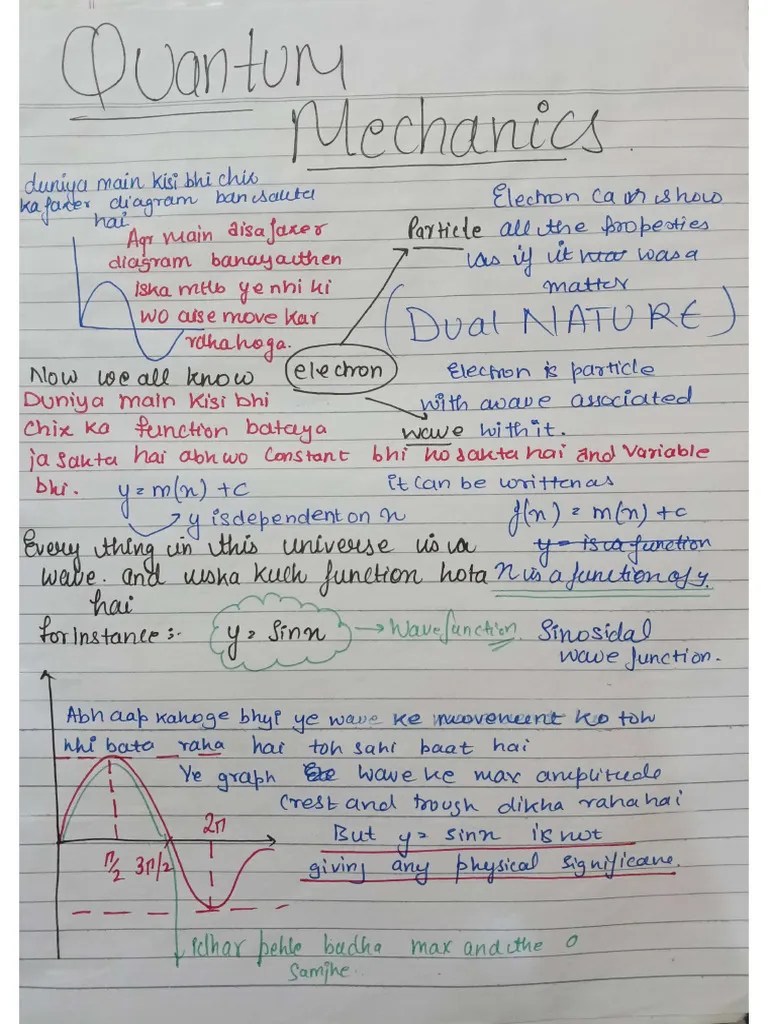 Quantum
Mechanics.
duniya main kisi bhi chix
ka faxer diagram ban sakta
hai
Agr main aisa faxer
diagram banaya uthen
iska mtlb ye nhi ki
wo aise move kar
rdha hoga.
Electron can show
Particle all the properties
as if it was a
matter
(Dual NATURE)
electron
Now we all know
Electron is particle
with a wave associated
wave with it.
Duniya main kisi bhi
chix ko function bataya
ja sakta hai abh wo constant bhi ho sakta hai and variable
bhi. y = m(x) + c
it can be written as
y is dependent on x
f(x) = m(x) + c
y = is a function
x is a function of y.
Every thing in this universe is a
wave. and uska kuch function hota
hai
for instance :-
y = sinx
Wavefunction
Sinosidal
wave function.
Abh aap kahoge bhyi ye wave ke movement ko toh
nhi bata raha hai toh sahi baat hai
Ye graph wave ke max amplitude
crest and trough dikha raha hai
But y = sinx is not
giving any physical significane.
π/2
3π/2
2π
Idhar pehle badha max and the 0
samjhe